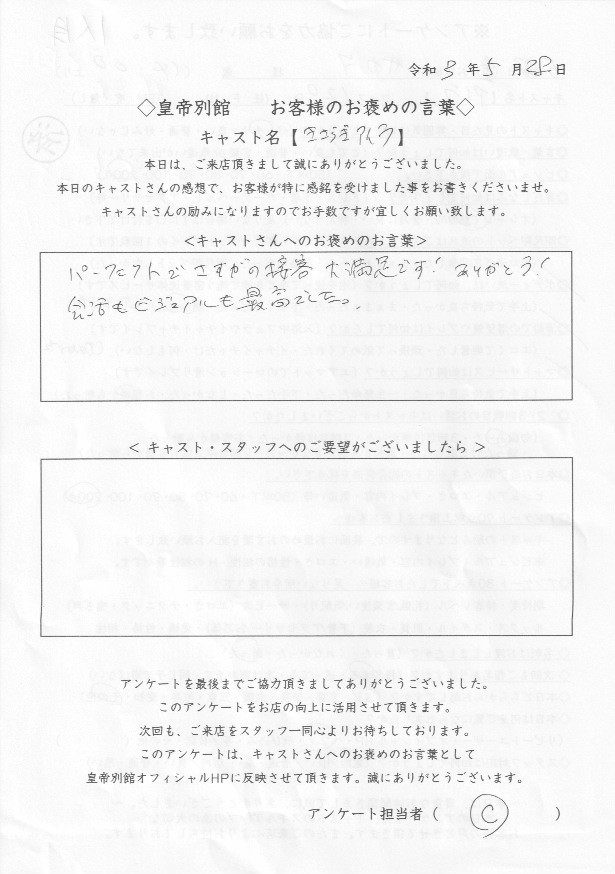 令和 8 年 5 月 28 日
◇皇帝別館 お客様のお褒めの言葉◇
キャスト名【 きさらぎ 】
本日は、ご来店頂きまして誠にありがとうございました。
本日のキャストさんの感想で、お客様が特に感銘を受けました事をお書きくださいませ。
キャストさんの励みになりますのでお手数ですが宜しくお願い致します。
<キャストさんへのお褒めのお言葉>
パーフェクトでさすがの接客 大満足です! ありがとう!
会話もビジュアルも最高でした。
< キャスト・スタッフへのご要望がございましたら >
アンケートを最後までご協力頂きましてありがとうございました。
このアンケートをお店の向上に活用させて頂きます。
次回も、ご来店をスタッフ一同心よりお待ちしております。
このアンケートは、キャストさんへのお褒めのお言葉として
皇帝別館オフィシャルHPに反映させて頂きます。誠にありがとうございます。
アンケート担当者 ( C )